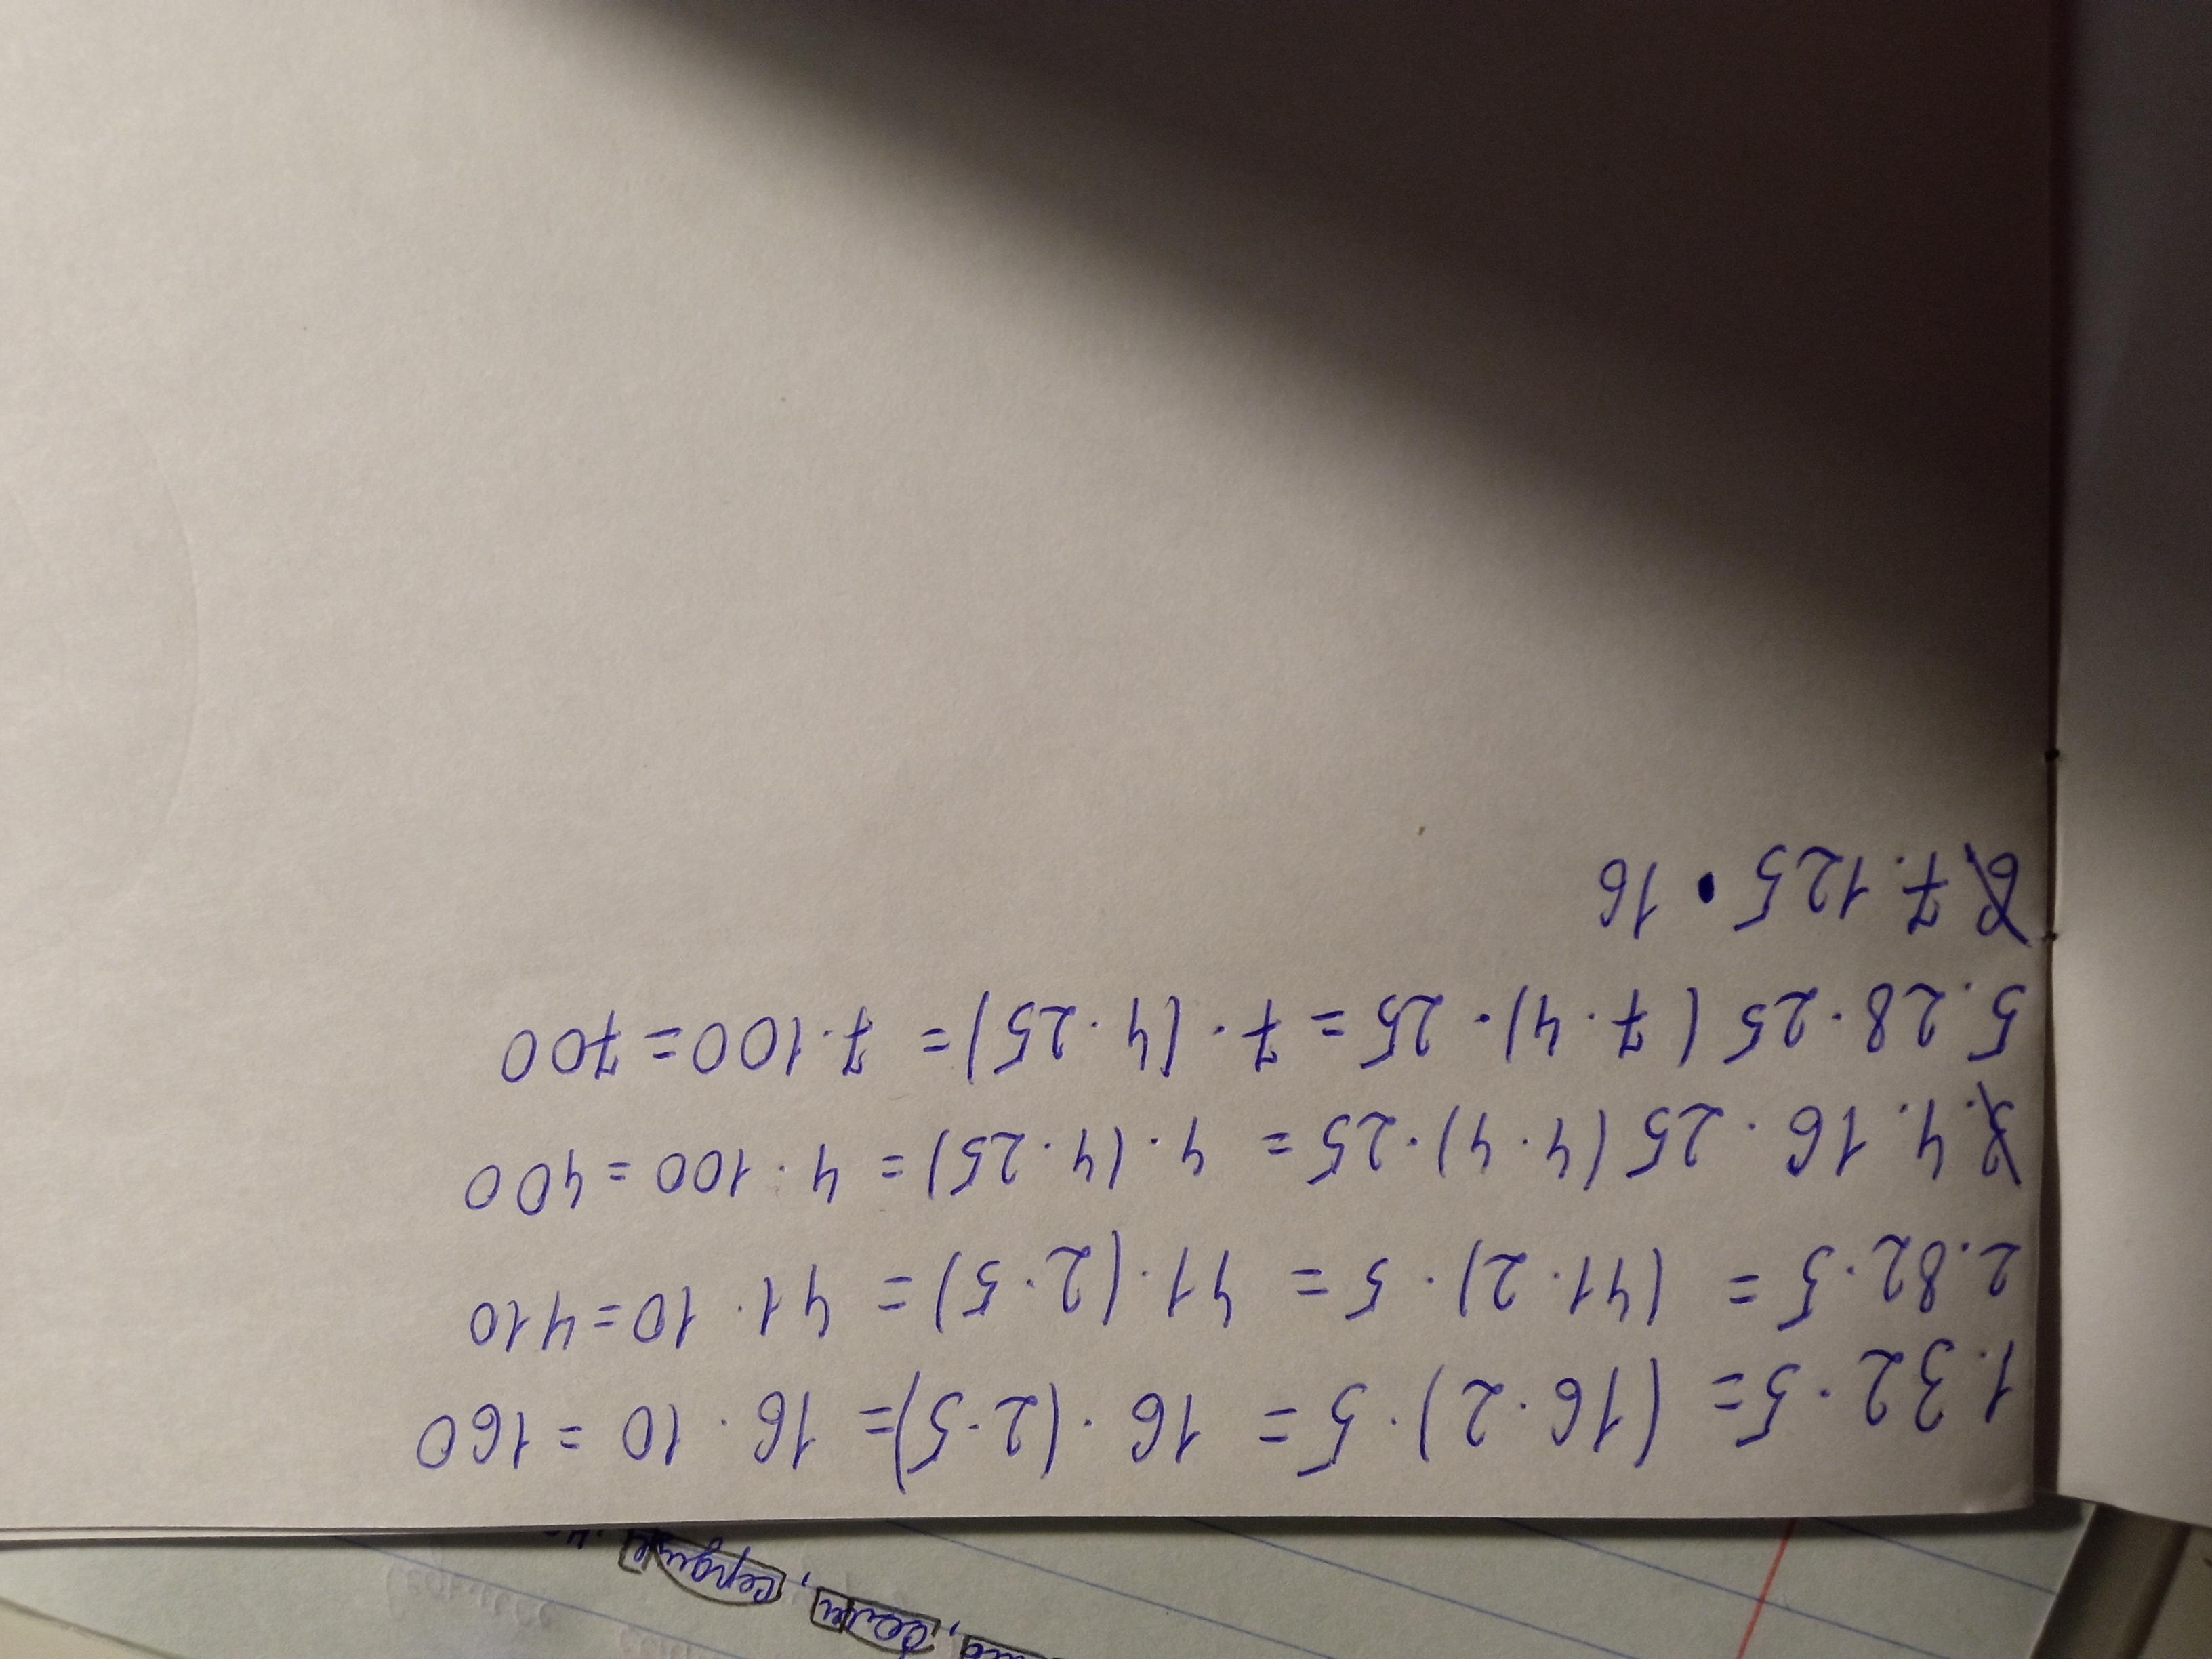 1. 32 · 5 = (16 · 2) · 5 = 16 · (2 · 5) = 16 · 10 = 160
2. 82 · 5 = (41 · 2) · 5 = 41 · (2 · 5) = 41 · 10 = 410
4. 16 · 25 (4 · 4) · 25 = 4 · (4 · 25) = 4 · 100 = 400
5. 28 · 25 (7 · 4) · 25 = 7 · (4 · 25) = 7 · 100 = 700
7. 125 · 16
сердце